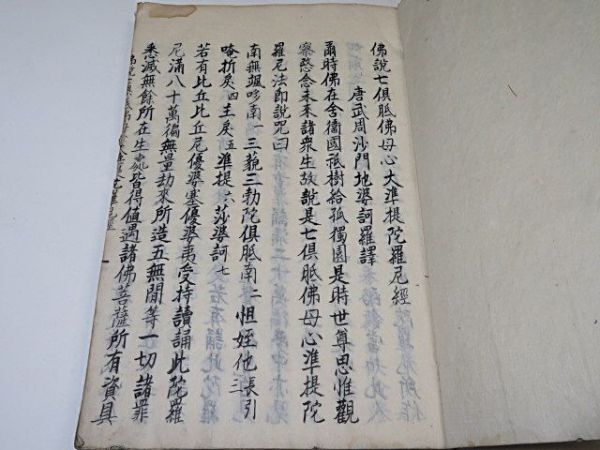 佛說七俱胝佛母心大準提陀羅尼經
唐武周沙門地婆訶羅譯
爾時佛在舍衞國祇樹給孤獨園是時世尊思惟觀
察愍念未來諸衆生故說是七俱胝佛母心準提陀
羅尼法即說咒曰
南無颯哆南一三藐三勃陀俱胝南二怛姪他長引三
唵折戾四主戾五準提六莎婆訶七
若有比丘比丘尼優婆塞優婆夷受持讀誦此陀羅
尼滿八十萬徧無量劫來所造五無間等一切諸罪
悉滅無餘所在生處皆得値遇諸佛菩薩所有資具